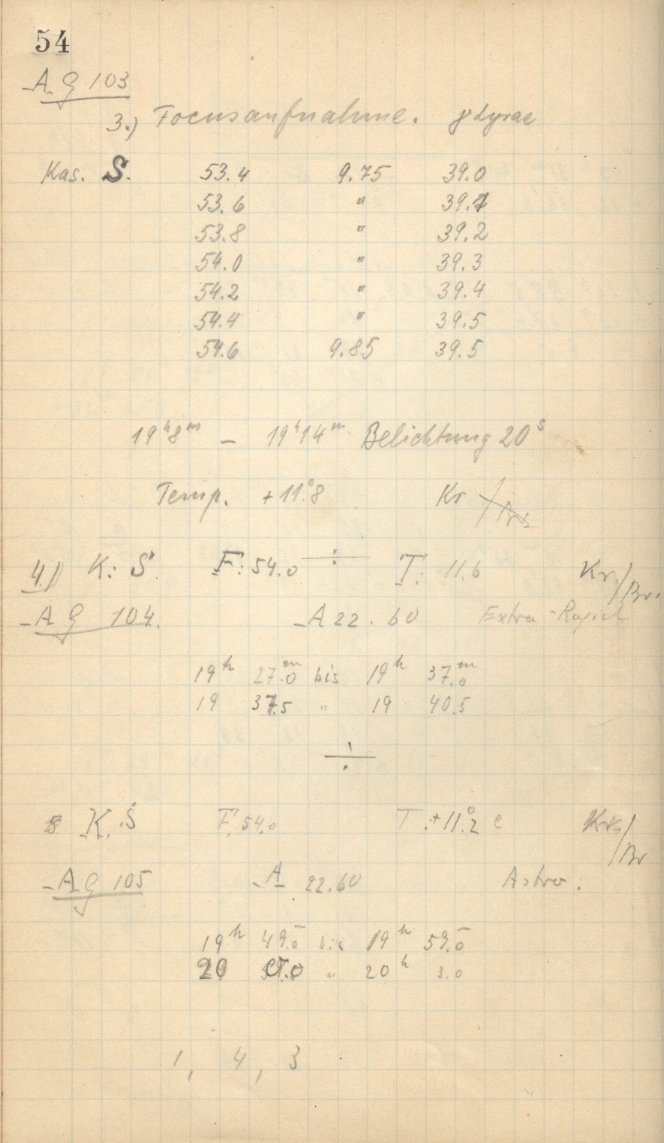 54
A. G 103
3.) Focusaufnahme. γ Lyrae
Kas. S. 53.4 9.75 39.0
53.6 " 39.1
53.8 " 39.2
54.0 " 39.3
54.2 " 39.4
54.4 " 39.5
54.6 9.85 39.5
19ʰ8ᵐ – 19ʰ14ᵐ Belichtung 20ˢ
Temp. +11°8 Kr
4) K: S. F: 54.0 ÷ T: 11.6 Kr./Br.
A G 104. A 22.60 Extra-Rapid
19ʰ 27ᵐ.0 bis 19ʰ 37ᵐ.0
19 37.5 " 19 40.5
÷
5 K. S F. 54.0 T. +11°.2 C Kr./Br
A G 105 A 22.60 Astro.
19ʰ 49.0 bis 19ʰ 59.0
20 0.0 " 20ʰ 3.0
1, 4, 3